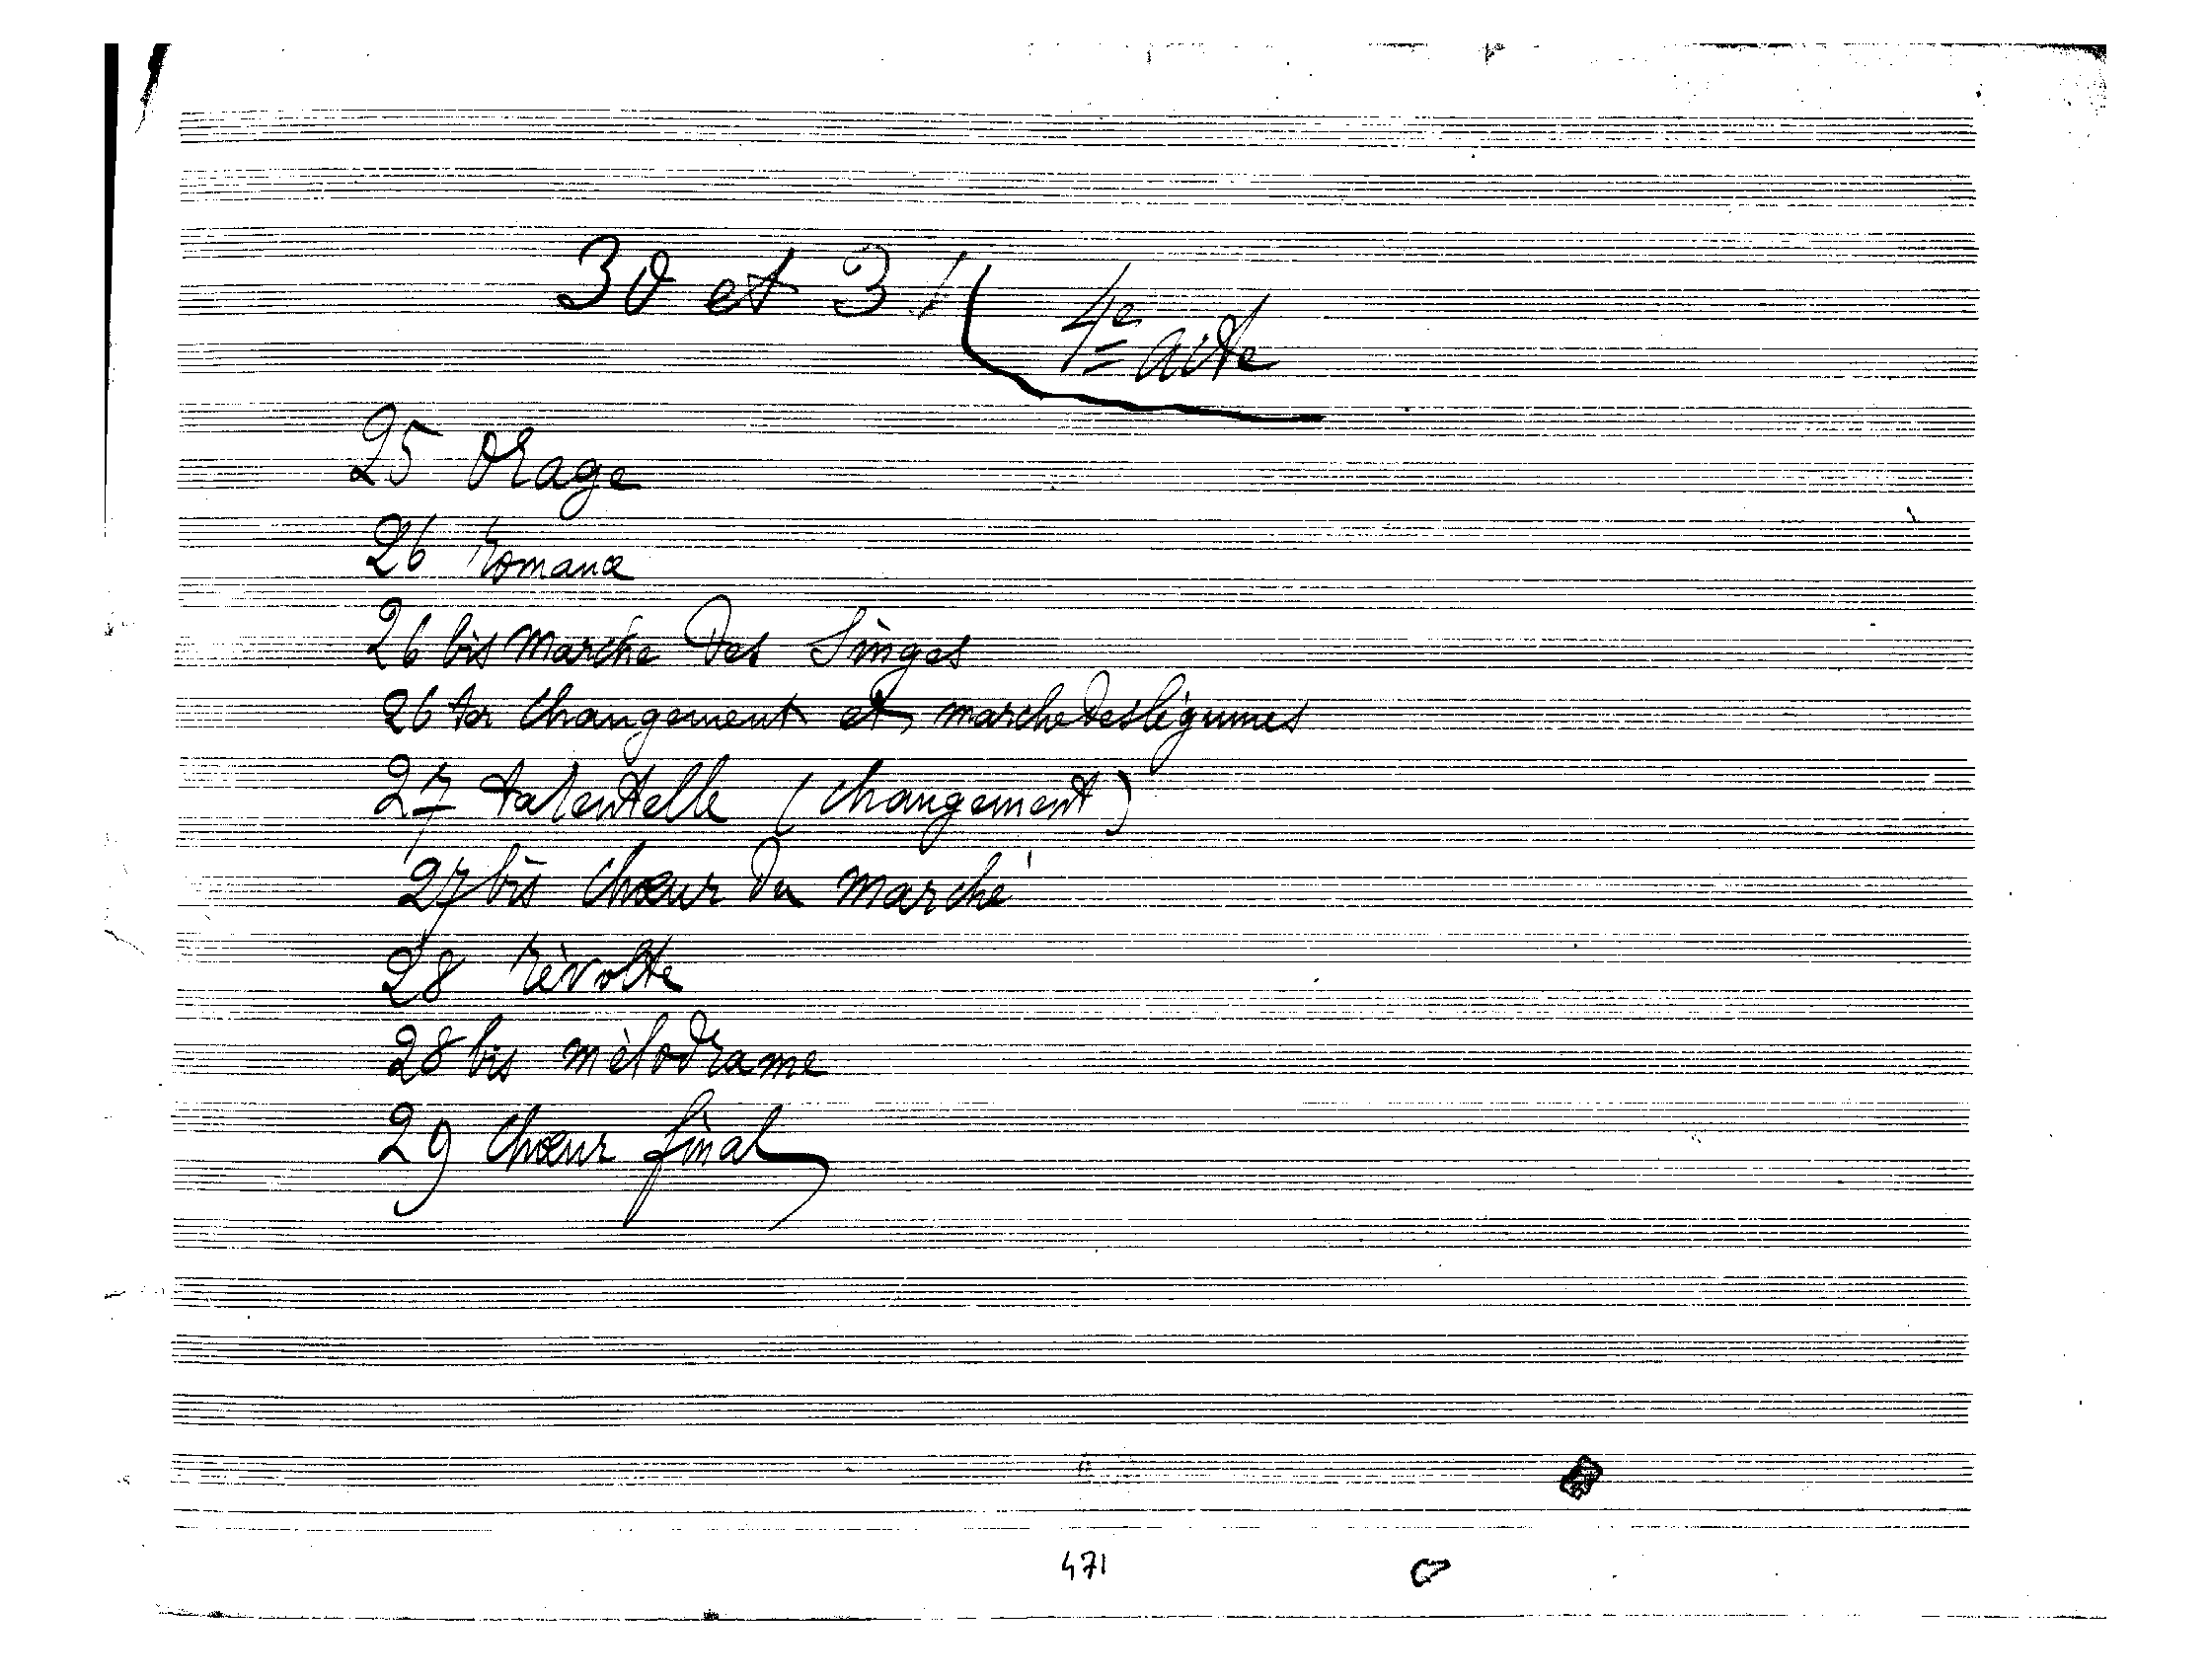 30 et 31
4e acte
25 Orage
26 Romance
26 bis Marche des Singes
26 ter Changement et marche des légumes
27 tarentelle (changement)
27 bis Chœur du marché
28 Révolte
28 bis mélodrame
29 Chœur final
471